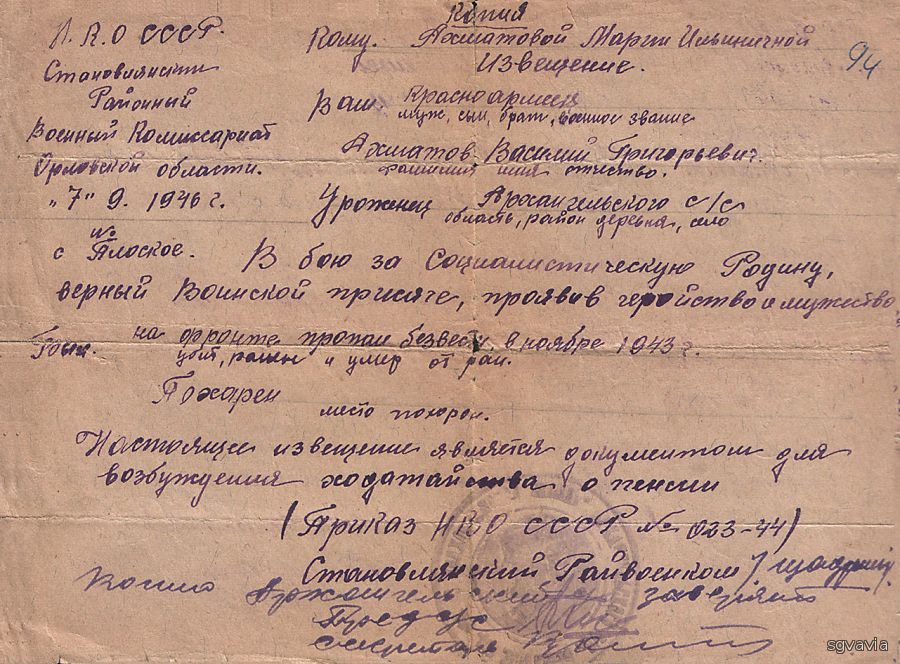 Копия
Н.К.О СССР.
Становлянский
Районный
Военный Комиссариат
Орловской области.
"7" 9. 1946 г.
№
Кому. Ахматовой Марии Ильиничной
Извещение.
94
Ваш Красноармеец
муж, сын, брат, военное звание
Ахматов Василий Григорьевич.
фамилия имя отчество.
Уроженец Архангельского с/с
область, район деревня, село
с Плоское. В бою за Социалистическую Родину,
верный Воинской присяге, проявив геройство и мужество
был. на фронте пропал безвести в ноябре 1943 г.
убит, ранен и умер от ран.
Похарен
место похорон.
Настоящие извещение является документом для
возбуждения ходатайства о пенсии
(Приказ НКО СССР № 023-44)
Становлянский Райвоенком /
Копию Архангельский заверяет
Предс
секретарь
sgvavia